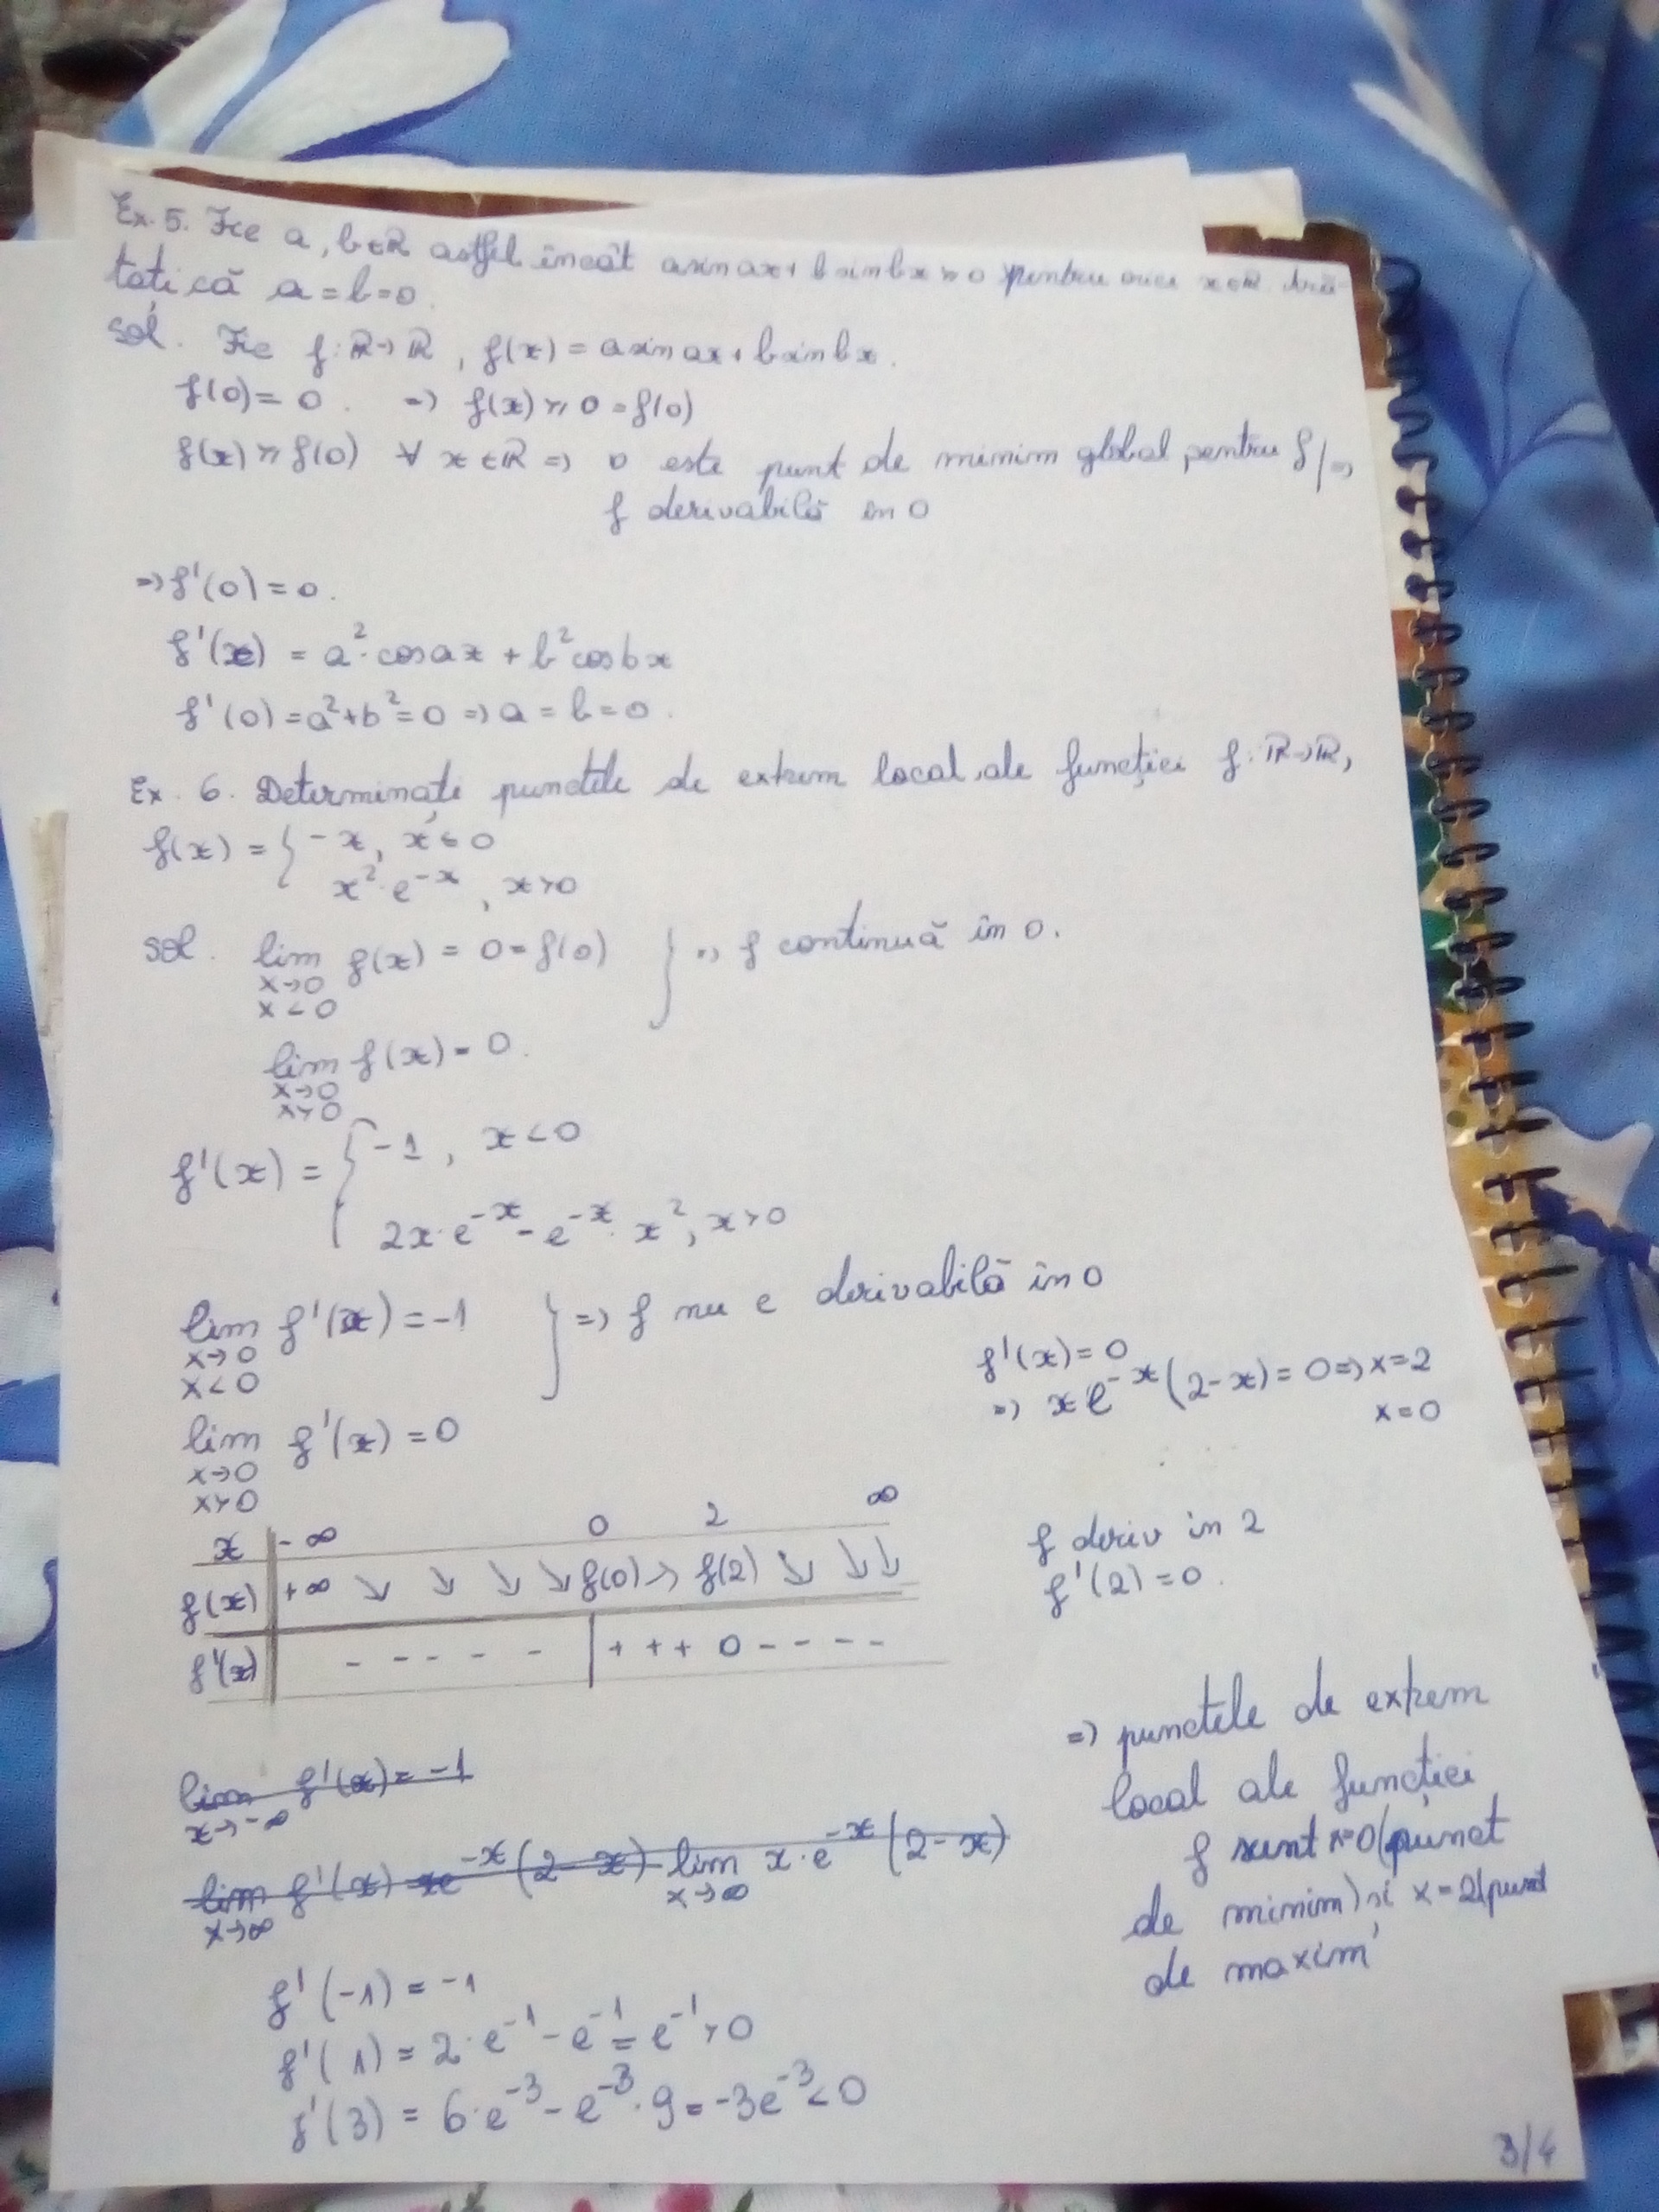 Ex. 5. Fie a, b∈ℝ astfel încât a sin ax + b sin bx ≥ 0 pentru orice x∈ℝ. Ară-
tați că a = b = 0.
Sol. Fie f: ℝ→ℝ, f(x) = a sin ax + b sin bx.
f(0) = 0. => f(x) ≥ 0 = f(0)
f(x) ≥ f(0) ∀ x∈ℝ => 0 este punt de minim global pentru f | =>
f derivabilă în 0
=> f'(0) = 0.
f'(x) = a²·cos ax + b² cos bx
f'(0) = a² + b² = 0 => a = b = 0.
Ex. 6. Determinați punctele de extrem local ale funcției f: ℝ→ℝ,
f(x) = { -x, x ≤ 0
x²·e^-x, x > 0
Sol. lim f(x) = 0 = f(0) } => f continuă în 0.
x→0
x<0
lim f(x) = 0.
x→0
x>0
f'(x) = { -1, x < 0
2x·e^-x - e^-x·x², x > 0
lim f'(x) = -1 } => f nu e derivabilă în 0
x→0
x<0
f'(x) = 0
=> x e^-x (2-x) = 0 => x = 2
x = 0
lim f'(x) = 0
x→0
x>0
x | -∞ 0 2 ∞
f(x) | +∞ ↘ ↘ ↘ ↘ f(0) → f(2) ↘ ↘ ↘
f'(x) | - - - - - | + + + 0 - - - -
f deriv în 2
f'(2) = 0.
lim f'(x) = -1
x→-∞
lim f'(x) = xe^-x (2-x) lim x·e^-x (2-x)
x→∞ x→∞
=> punctele de extrem
local ale funcției
f sunt x=0 (punct
de minim) și x = 2 (punct
de maxim
f'(-1) = -1
f'(1) = 2·e^-1 - e^-1 = e^-1 > 0
f'(3) = 6·e^-3 - e^-3·9 = -3e^-3 < 0
3/4